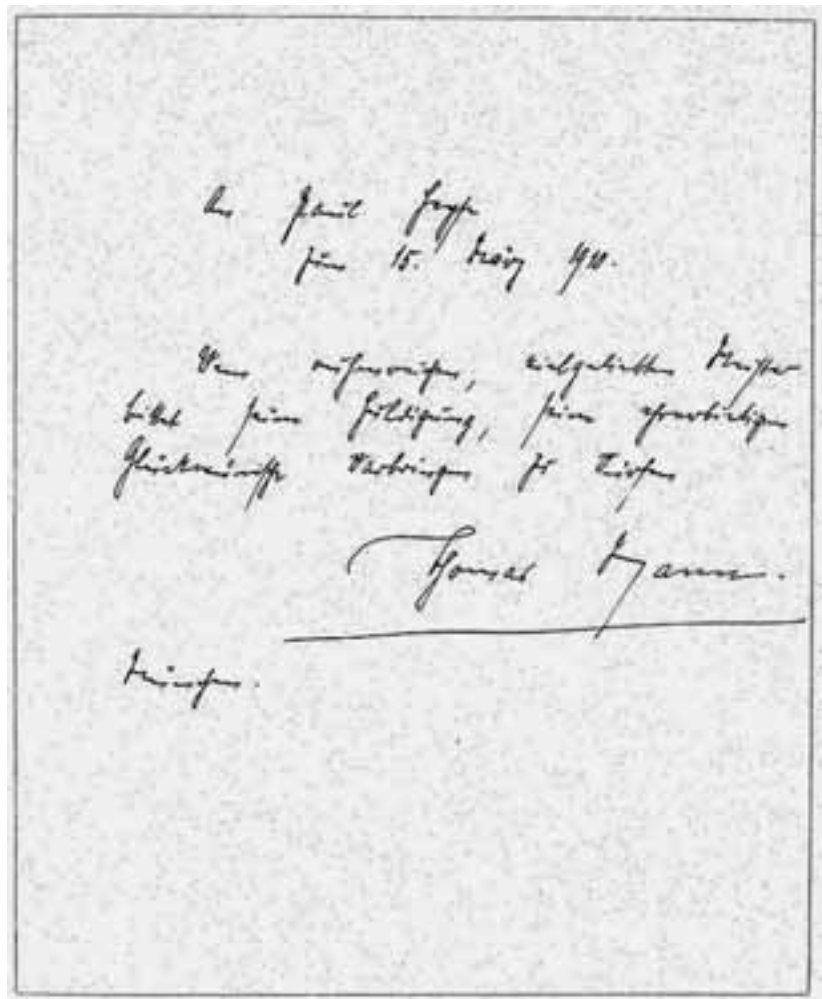 An Paul Heyse
zum 15. März 1910.
Dem ruhmreichen, vielgeliebten Meister
bittet seine Huldigung, seine ehrerbietigen
Glückwünsche darbringen zu dürfen
Thomas Mann.
München.